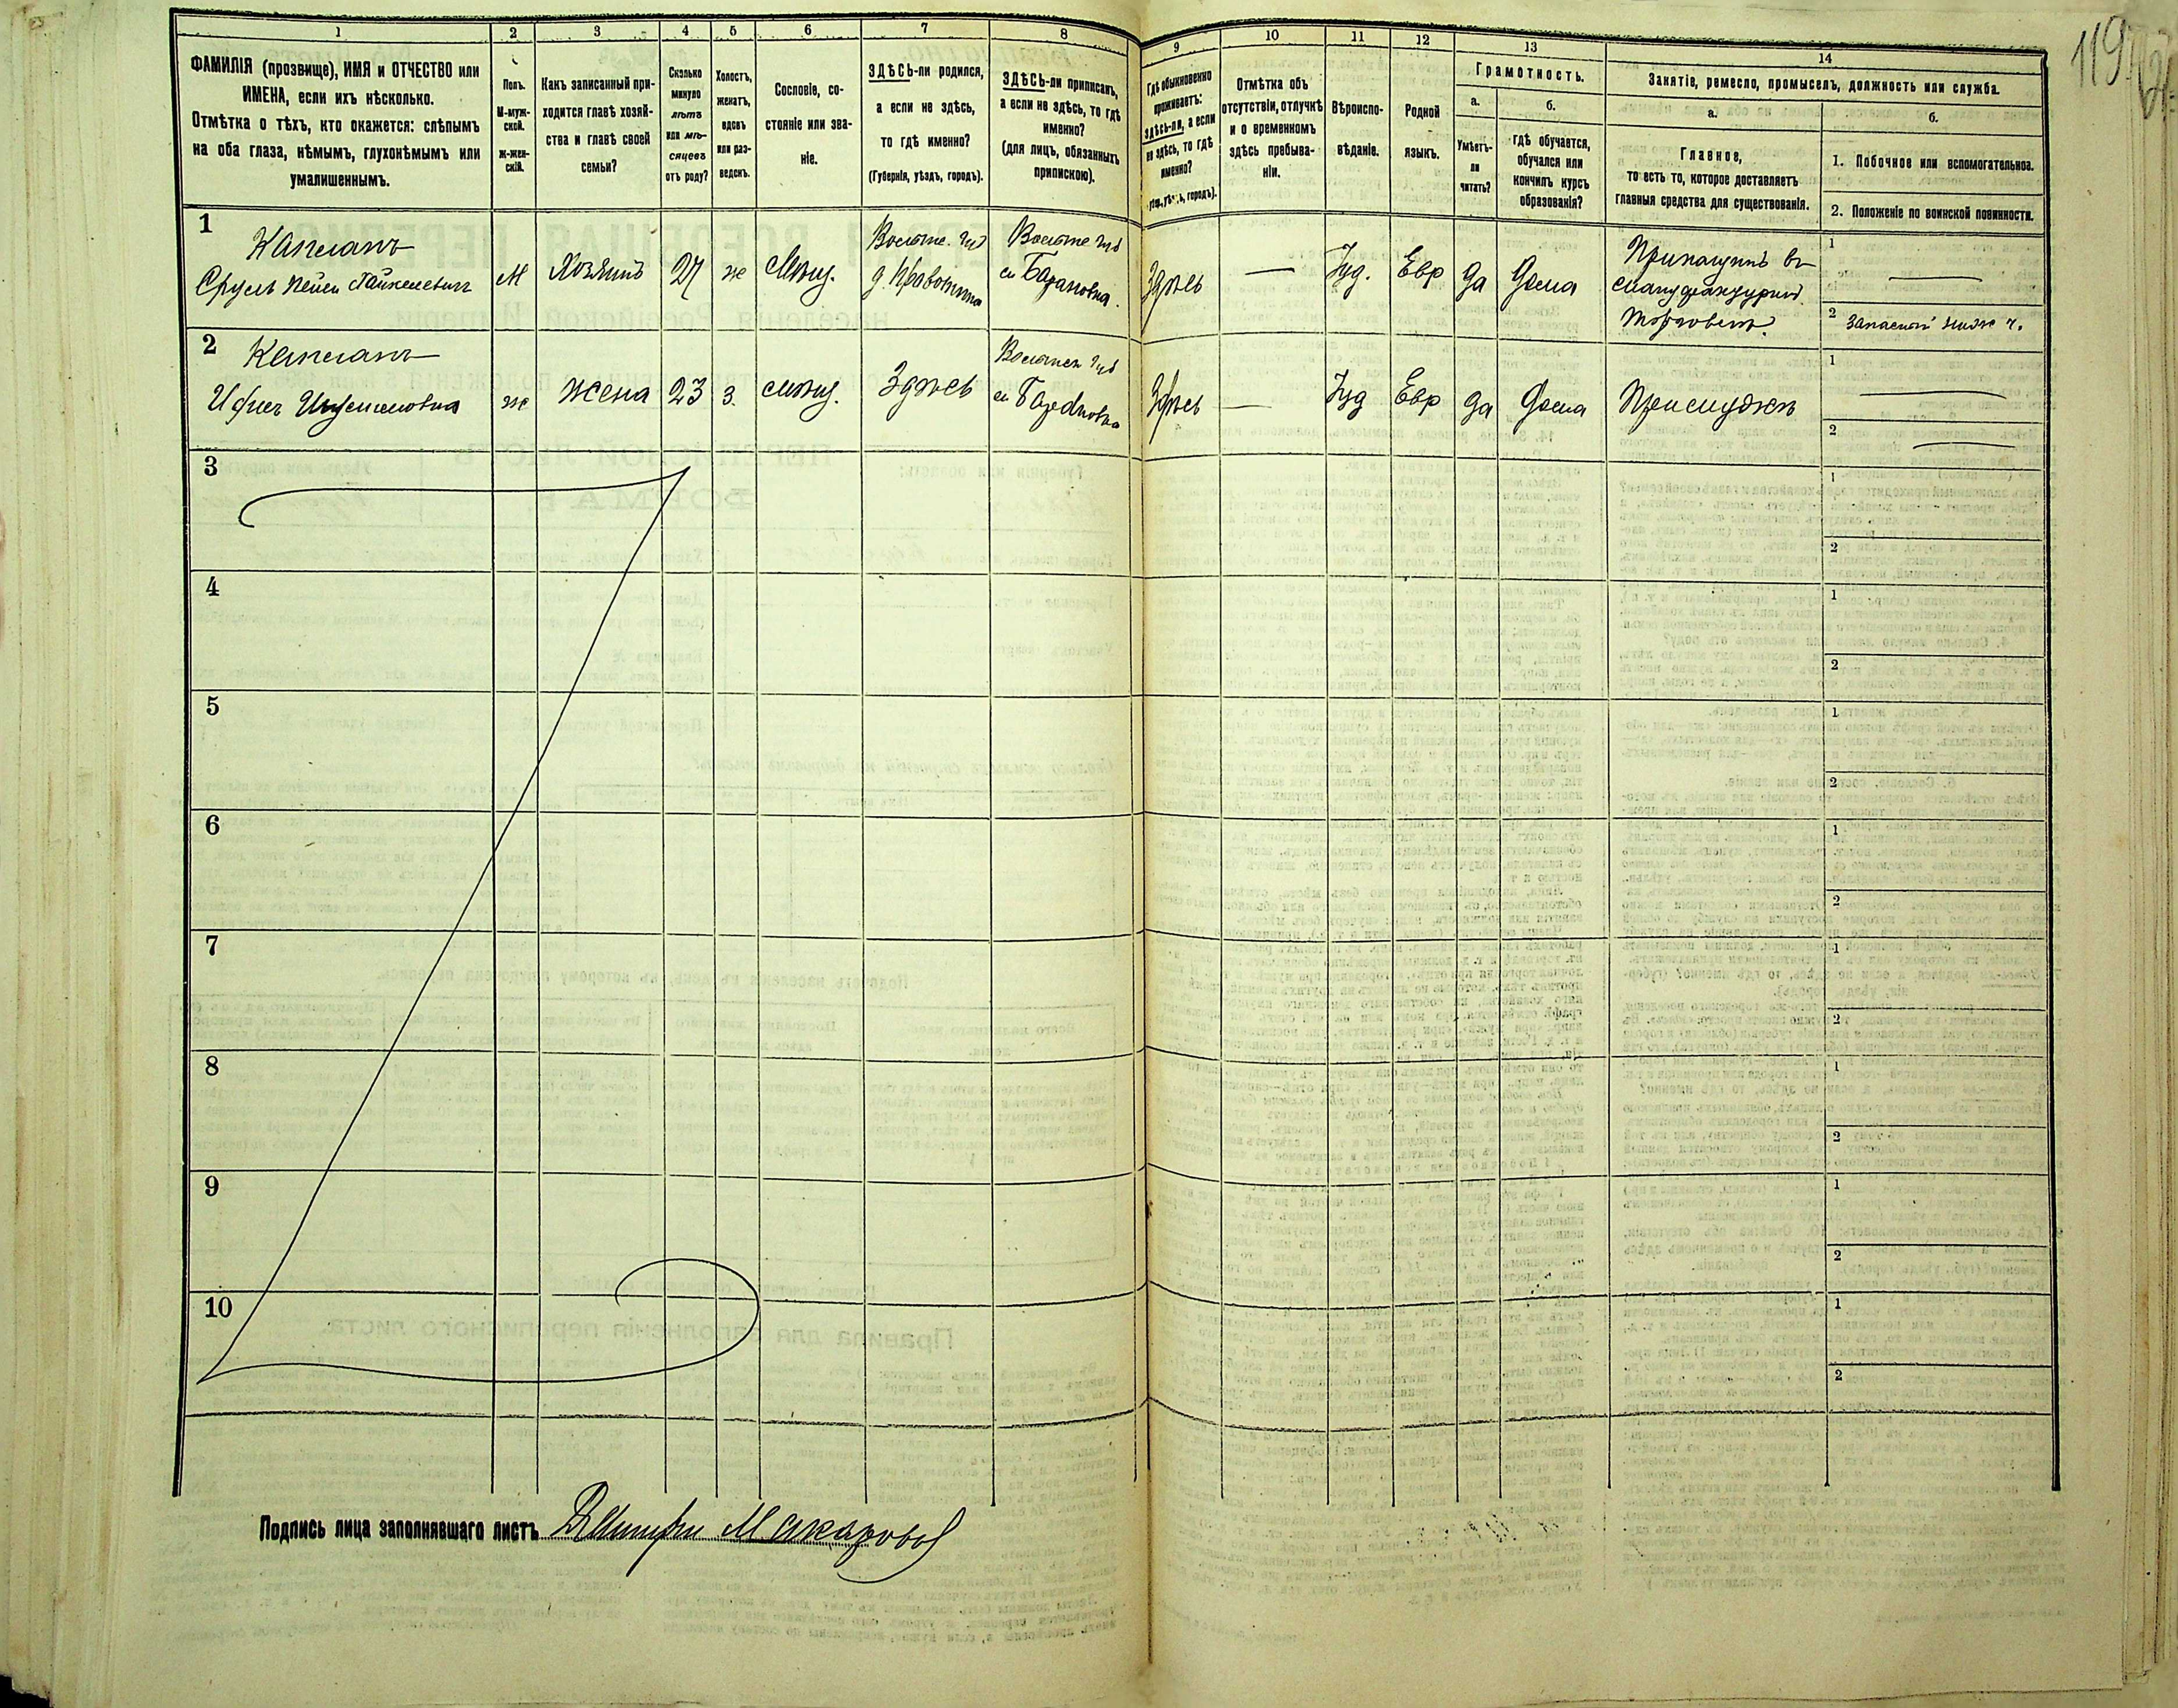 1 2 3 4 5 6 7 8 9 10 11 12 13 14
ФАМИЛІЯ (прозвище), ИМЯ и ОТЧЕСТВО или
ИМЕНА, если ихъ нѣсколько.
Отмѣтка о тѣхъ, кто окажется: слѣпымъ
на оба глаза, нѣмымъ, глухонѣмымъ или
умалишеннымъ.
Полъ.
М-муж-
ской.
ж-жен-
скій.
Какъ записанный при-
ходится главѣ хозяй-
ства и главѣ своей
семьи?
Сколько
минуло
лѣтъ
или мѣ-
сяцевъ
отъ роду?
Холостъ,
женатъ,
вдовъ
или раз-
веденъ.
Сословіе, со-
стояніе или зва-
ніе.
ЗДѢСЬ-ли родился,
а если не здѣсь,
то гдѣ именно?
(Губернія, уѣздъ, городъ).
ЗДѢСЬ-ли приписанъ,
а если не здѣсь, то гдѣ
именно?
(для лицъ, обязанныхъ
припискою).
Гдѣ обыкновенно
проживаетъ:
здѣсь-ли, а если
не здѣсь, то гдѣ
именно?
городъ).
Отмѣтка объ
отсутствіи, отлучкѣ
и о временномъ
здѣсь пребыва-
ніи.
Вѣроиспо-
вѣданіе.
Родной
языкъ.
Грамотность.
а.
Умѣетъ-
ли
читать?
б.
гдѣ обучается,
обучался или
кончилъ курсъ
образованія?
Занятіе, ремесло, промыселъ, должность или служба.
а.
Главное,
то есть то, которое доставляетъ
главныя средства для существованія.
б.
1. Побочное или вспомогательное.
2. Положеніе по воинской повинности.
119
1
Капланъ
Сруль
М
Хозяинъ
27
ж
Мѣщ.
с. Барановка.
Здѣсь
Іуд.
Евр
да
дома
Прикащикъ въ
мануфактурной
торговлѣ.
1
2 Запасный нижн ч.
2
Капланъ
ж
жена
23
з.
мѣщ.
Здѣсь
Здѣсь
Іуд
Евр
да
дома
При мужѣ
1
2
3
1
2
4
1
2
5
1
2
6
1
2
7
1
2
8
1
2
9
1
2
10
1
2
Подпись лица заполнявшаго листъ Дмитрій Макаровъ